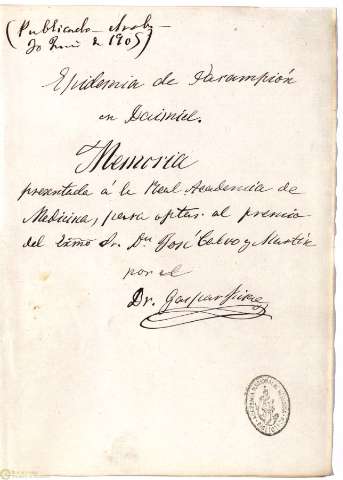 (Publicado
30 Junio de 1905)
Epidemia de Sarampión
en Daimiel.
Memoria
presentada á la Real Academia de
Medicina, para optar al premio
del Exmo Sr. Dn José Calvo y Martín
por el
Dr. Gaspar